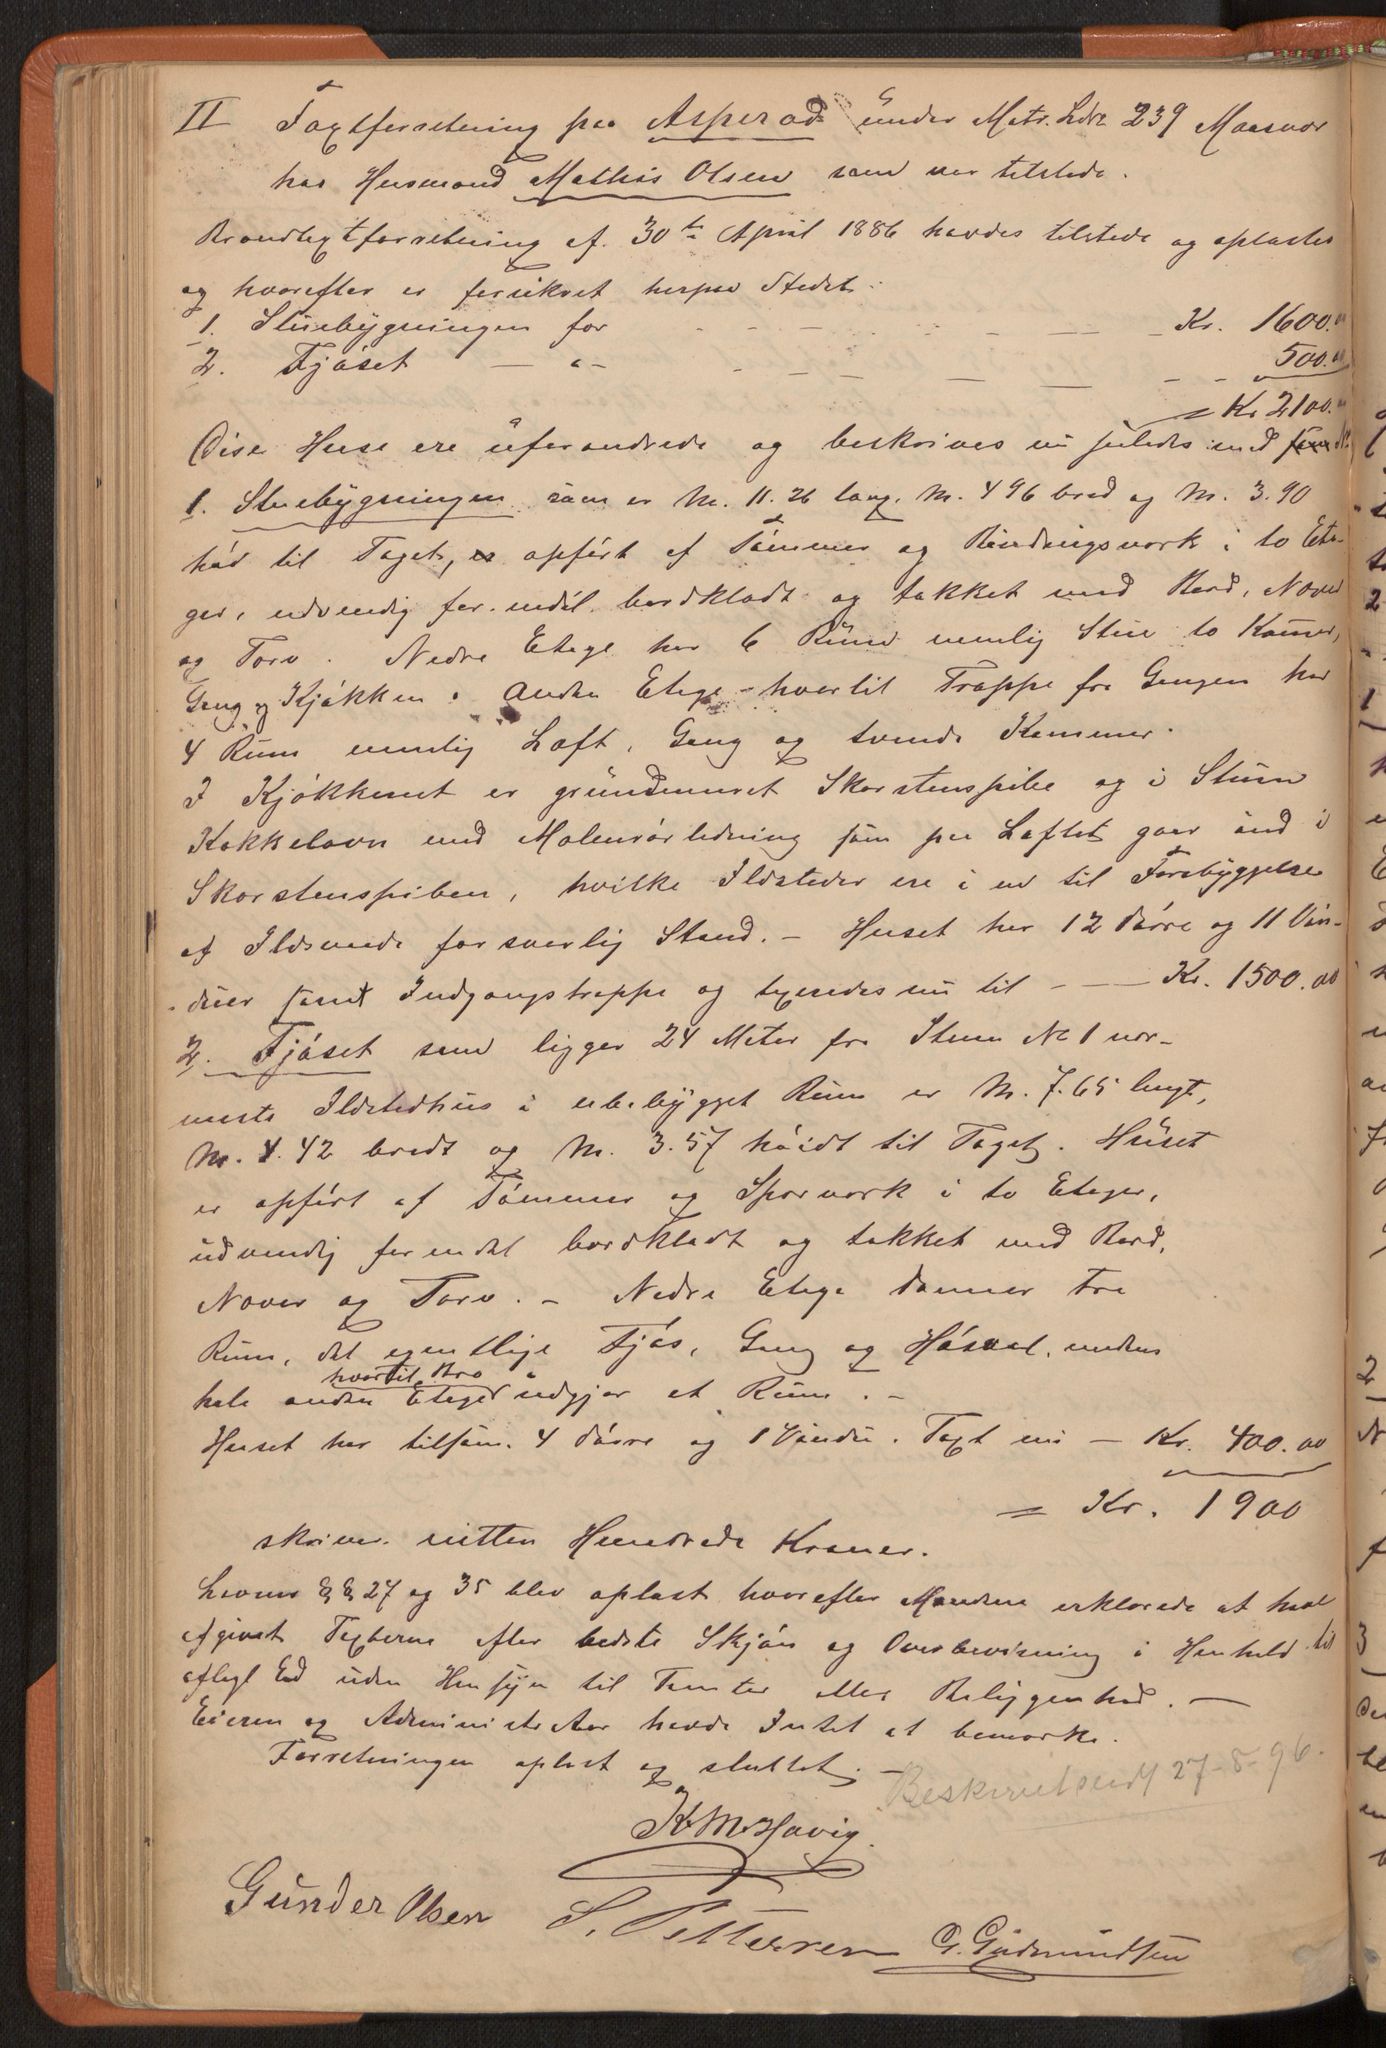 II Taxtforretning paa Asperød under Matr. Løbe 239 Maasvær
hos Husmand Mathis Olsen som var tilstede.
Brandtaxtforretning af 30te April 1886 havdes tilstede og oplæstes
og hvorefter er forsikret herpaa Stedet:
1. Stuebygningen for - - - Kr. 1600.00
2. Fjøset - " - - - - 500.00
= Kr 2100.00
Disse Huse ere uforandrede og beskrives nu saaledes
1. Stuebygningen som er M. 11.26 lang, M. 4.96 bred og M. 3.90
høi til Taget, er opført af Tømmer og Bindingsværk i to Eta-
ger, udvendig for endel bordklædt og tækket med Bord, Næver
og Torv. Nedre Etage har 6 Rum nemlig Stue to Kamre,
Gang og Kjøkken. Anden Etage - hvortil Trappe fra Gangen har
4 Rum nemlig Loft, Gang og tvende Kammer.
I Kjøkkenet er grundmuret Skorstenspibe og i Stuen
Kakkelovn med Malmrørledning som paa Loftet gaar ind i
Skorstenspiben, hvilke Ildsteder ere i en til Forebyggelse
af Ildsvaade forsvarlig Stand. - Huset har 12 Dørre og 11 Vin-
duer samt Indgangstrappe og taxeredes nu til - - Kr. 1500.00
2. Fjøset som ligger 24 Meter fra Stuen No 1 nær-
meste Ildstedhus i ubebygget Rum er M. 7.65 langt,
M. 4.42 bredt og M. 3.57 høidt til Taget. Huset
er opført af Tømmer og Sporværk i to Etager,
udvendig for endel bordklædt og tækket med Bord,
Næver og Torv. - Nedre Etage danner tre
Rum, det egentlige Fjøs, Gang og Høsval, medens
hvortil Bro
hele anden Etage udgjør et Rum. -
Huset har tilsam. 4 Dørre og 1 Vindu. Taxt nu - Kr. 400.00
= Kr. 1900
skriver nitten Hundrede Kroner.
Lovens §§ 27 og 35 blev oplæst hvorefter Mændene erklærede at have
afgivet Taxterne efter bedste Skjøn og Overbevisning i Henhold til
aflagt Ed uden Hensyn til Tomter eller Beliggenhed. -
Eieren og Administrator havde Intet at bemærke.
Forretningen oplæst og sluttet. -
Beskrivet sendt 27-8-96.
K M Havig
Gunder Olsen S. Pettersen G. Gudmundsen